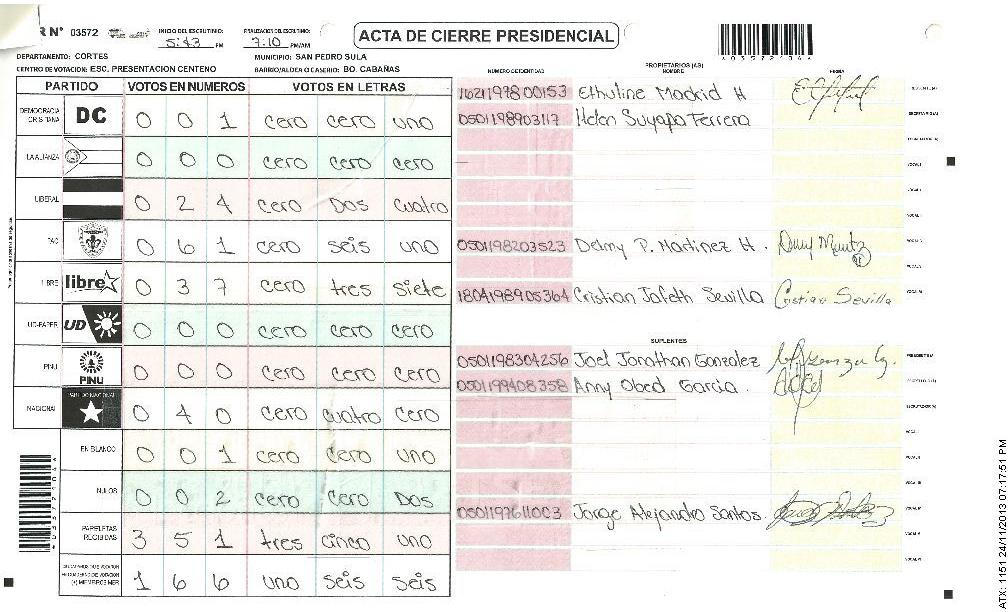 R Nº 03572 INICIO DEL ESCRUTINIO: 5:43 PM FINALIZACION DEL ESCRUTINIO: 7:10 PM/AM
ACTA DE CIERRE PRESIDENCIAL
DEPARTAMENTO: CORTES MUNICIPIO: SAN PEDRO SULA
CENTRO DE VOTACION: ESC. PRESENTACION CENTENO BARRIO/ALDEA O CASERIO: BO. CABAÑAS
PARTIDO VOTOS EN NUMEROS VOTOS EN LETRAS
DEMOCRACIA CRISTIANA DC 0 0 1 cero cero uno
LA ALIANZA 0 0 0 cero cero cero
LIBERAL 0 2 4 cero Dos cuatro
PAC 0 6 1 cero seis uno
LIBRE libre 0 3 7 cero tres siete
UD-FAPER UD 0 0 0 cero cero cero
PINU PINU 0 0 0 cero cero cero
NACIONAL PARTIDO NACIONAL 0 4 0 cero cuatro cero
EN BLANCO 0 0 1 cero cero uno
NULOS 0 0 2 cero cero Dos
PAPELETAS RECIBIDAS 3 5 1 tres cinco uno
1 6 6 uno seis seis
PROPIETARIOS (AS)
NUMERO DE IDENTIDAD NOMBRE FIRMA
1621197800153 Ethuline Madrid H
0501198903117 Helen Suyapa Ferrera
0501198203523 Delmy P. Martinez H.
1804198905364 Cristian Jafeth Sevilla Cristian Sevilla
SUPLENTES
0501198304256 Joel Jonathan Gonzalez
0501199408358 Anny Obed Garcia.
0501197611003 Jorge Alejandro Santos.
ATX: 1151 24/11/2013 07:17:51 PM